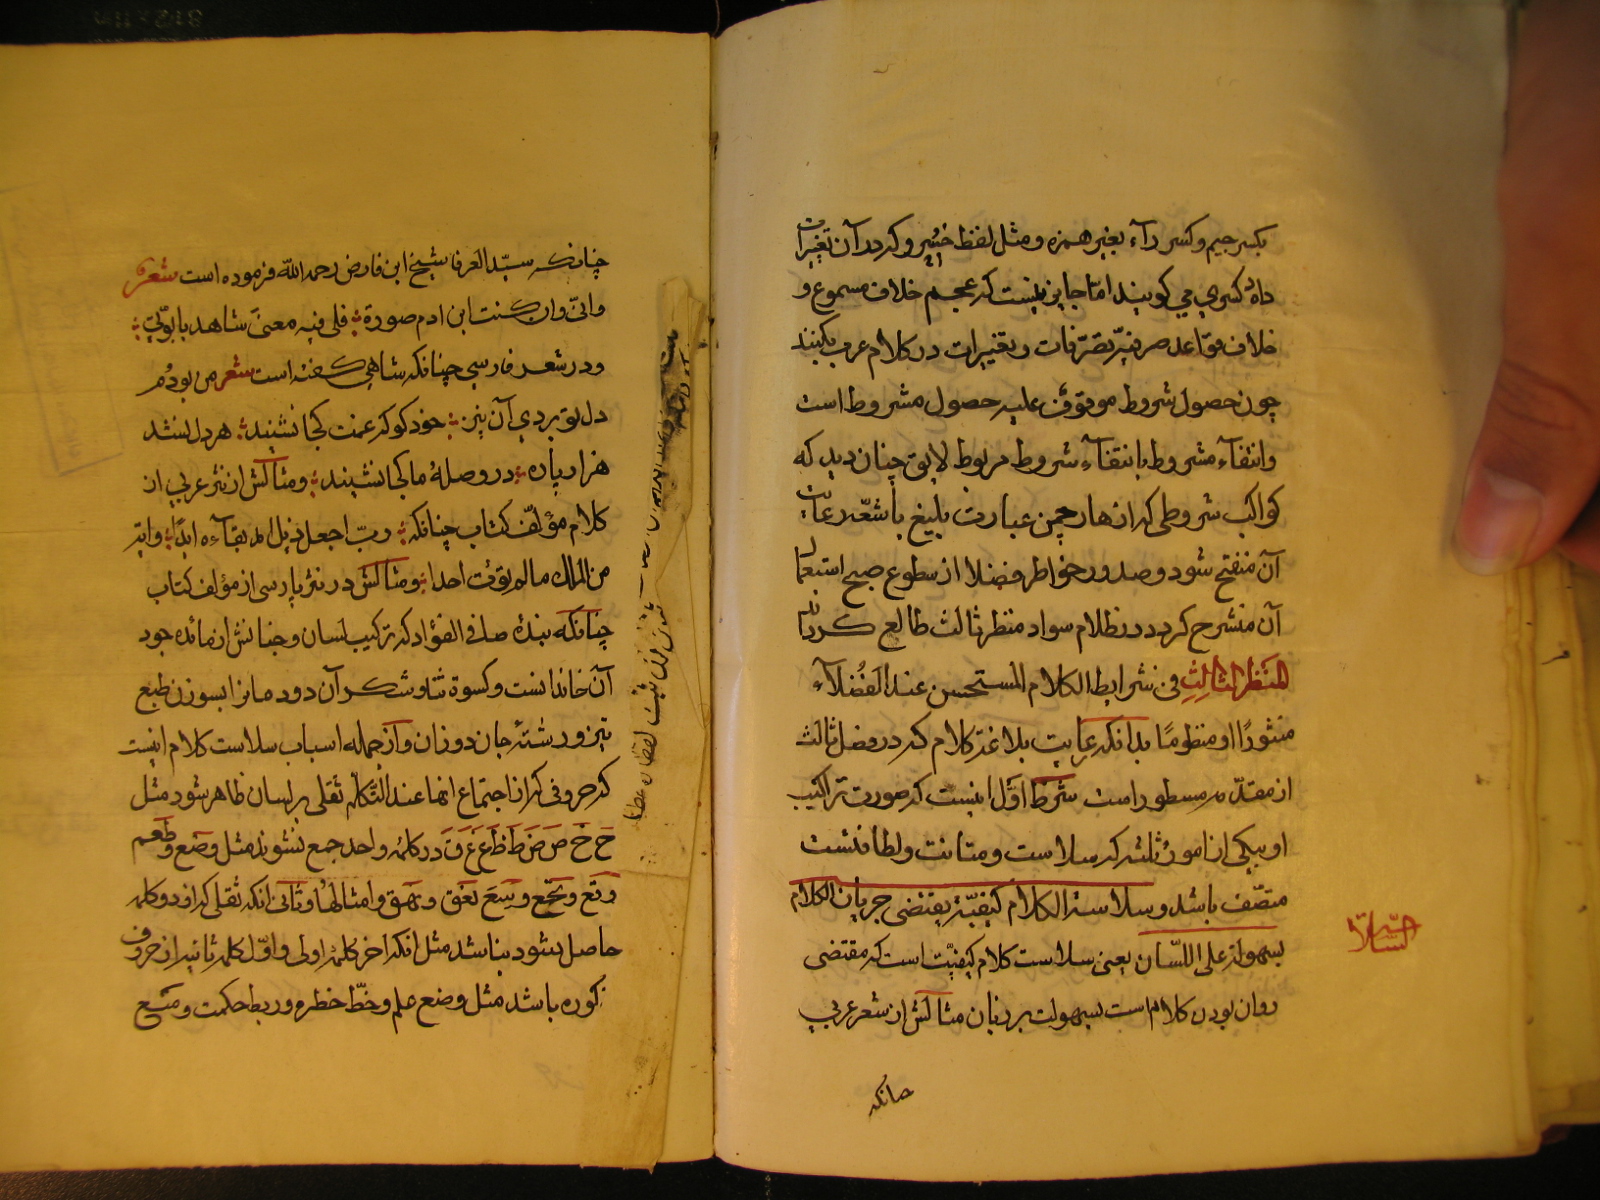 بکسر جیم و کسر رآء بغیر همزه و مثل لفظ خسرو که در آن تغییرات
داده کسری می کویند امّا جایز نیست که عجم خلاف مسموع و
خلاف قواعد صرفیّه تصرّفات و تغییرات در کلام عرب بکنند
چون حصول شروط موقوف علیه حصول مشروط است
وانتفآء مشروط بانتفآء شروط مربوط لایق چنان دید که
کواکب شروطی که ازهار چمن عبارت بلیغ باشعّه رعایت
آن منفتح شود و صدور خواطر فضلا از سطوع صبح استعمال
آن منشرح کردد در ظلام سواد منظر ثالث طالع کرداند
المنظر الثالث فی شرایط الکلام المستحسن عند الفضلآء
منثورًا او منظومًا بدانکه رعایت بلاغة کلام که در فصل ثالث
از مقدّمه مسطور است شرط اوّل اینست که صورت تراکیب
او بیکی از امور ثلثه که سلاست و متانت و لطافتست
متصّف باشد و سلاسة الکلام کیفیّة یقتضی جریان الکلام
بسهولة علی اللسّان یعنی سلاست کلام کیفیّت است که مقتضی
روان بودن کلام است بسهولت بر زبان مثالش از شعر عربی
السّلاسة
چانکه
چنانکه سیّد العرفا شیخ ابن فارض رحمه الله فرموده است شعر
وانّی وان کنت ابن ادم صورة فلی فیه معنیً شاهد بابوّتی
و در شعر فارسی چنانکه شاهی کفته است شعر من بودم
دل تو بردی آن نیز خود کو که غمت کجا نشیند هر دل نشد
هزار پاره در وصلهٔ ما کجا نشیند و مثالش از نثر عربی از
کلام مؤلّف کتاب چنانکه ربّ اجعل ذیل بقآءه ابدًا واته
من الملک ما لم یؤت احدا و مثالش در نثر پارسی از مؤلف کتاب
چنانکه بنده صافی الفؤاد که ترکیب لسان و جنانش از مائده جود
آن خاندانست و کسوة ثنا و شکر آن دودمانرا بسوزن طبع
تیز و رشته جان دوزان و از جمله اسباب سلاست کلام اینست
که حروفی که از اجتماع انها عند التّکلّم ثقلی بر لسان ظاهر شود مثل
ح خ ص ض ط ظ ع غ ق در کلمهٔ واحد جمع نشوند مثل وضع و طعم
و تع و بخّع و سع نعق و نهق و امثالها و ثانی انکه ثقلی که از دو کلمه
حاصل شود بناشد مثل انکه اخر کلمهٔ اولی و اوّل کلمه ثانیه از حروف
کوره باشد مثل وضع علم و خطّ خطره و ربط حکمت و متع